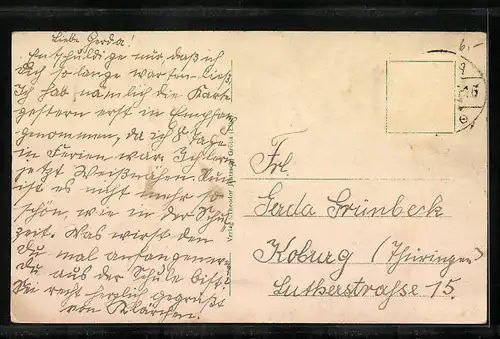 Liebe Gerda!
Entschuldige nur, daß ich
Dich so lange warten ließ,
Ich hab nämlich die Karte
gestern erst in Empfang
genommen, da ich 8 Tage
in Ferien war. Ich lern
jetzt Weißnähen. Nun
ist es nicht mehr so
schön, wie in der Schul
zeit. Was wirst den
Du mal anfangen wenn
Du aus der Schule bist.
Sei recht herzlich gegrüßt
von Klärchen.
Verlag
6,-
Frl.
Gerda Grünbeck
Koburg (Thüringen)
Lutherstrasse 15.